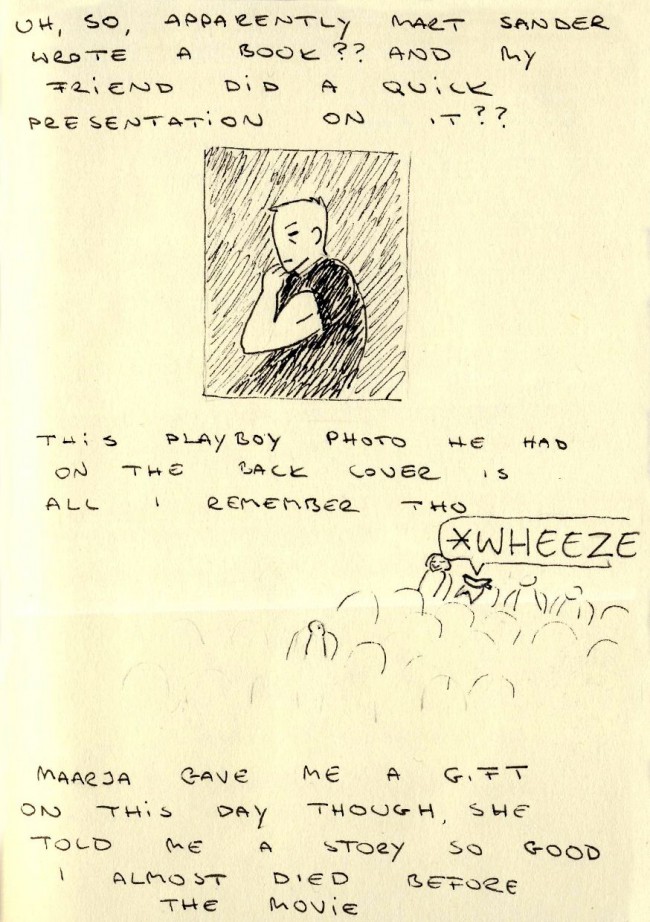 UH, SO, APPARENTLY MART SANDER
WROTE A BOOK?? AND MY
FRiEND DiD A QUiCK
PRESENTATiON ON iT??
THiS PLAYBOY PHOTO HE HAD
ON THE BACK COVER iS
ALL I REMEMBER THO
*WHEEZE
MAARJA GAVE ME A GiFT
ON THiS DAY THOUGH, SHE
TOLD ME A STORY SO GOOD
I ALMOST DIED BEFORE
THE MOVIE